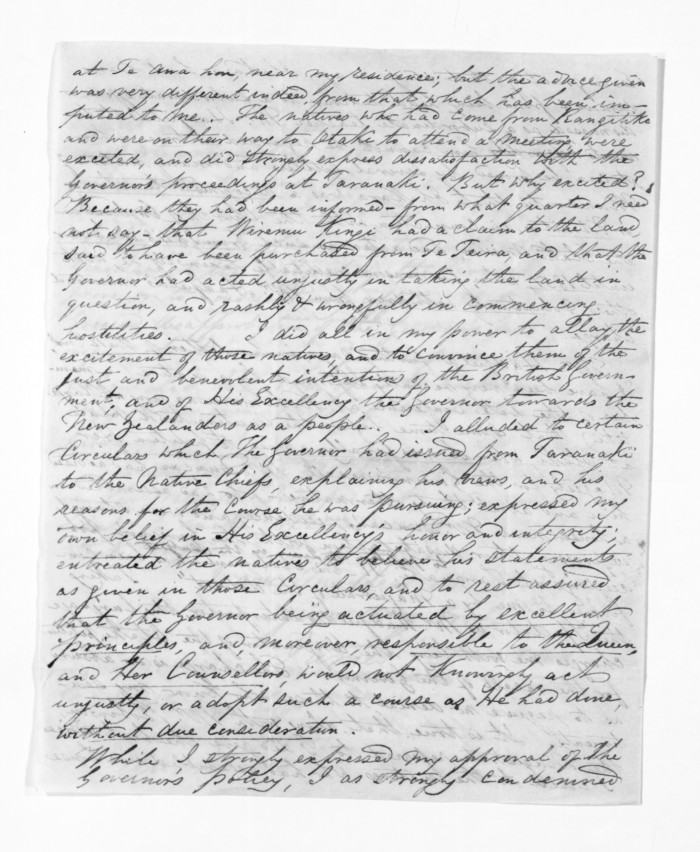 at Te Awa hou, near my residence; but the advice given
was very different indeed from that which has been im-
puted to me.. The natives who had come from Rangitike
and were on their way to Otaki to attend a meeting were
excited, and did strongly express dissatisfaction with the
Governor's proceedings at Taranaki. But why excited?
Because they had been informed - from what quarter I need
not say - that Wiremu Kingi had a claim to the land,
said to have been purchased from Te Teira, and that the
Governor had acted unjustly in taking the land in
question, and rashly & wrongfully in commencing
hostilities. I did all in my power to allay the
excitement of those natives, and to convince them of the
just and benevolent intentions of the British Govern-
ment, and of His Excellency the Governor towards the
New Zealanders as a people.. I alluded to certain
Circulars which The Governor had issued from Taranaki
to the Native Chiefs, explaining his views, and his
reasons for the Course he was pursuing; expressed my
own belief in His Excellency's honor and integrity;
entreated the natives to believe his statements
as given in those Circulars, and to rest assured
that the Governor being actuated by excellent
principles, and, moreover, responsible to the Queen,
and Her Counsellors, would not knowingly act
unjustly, or adopt such a course as He had done,
without due consideration.
While I strongly expressed my approval of the
Governor's policy, I as strongly condemned